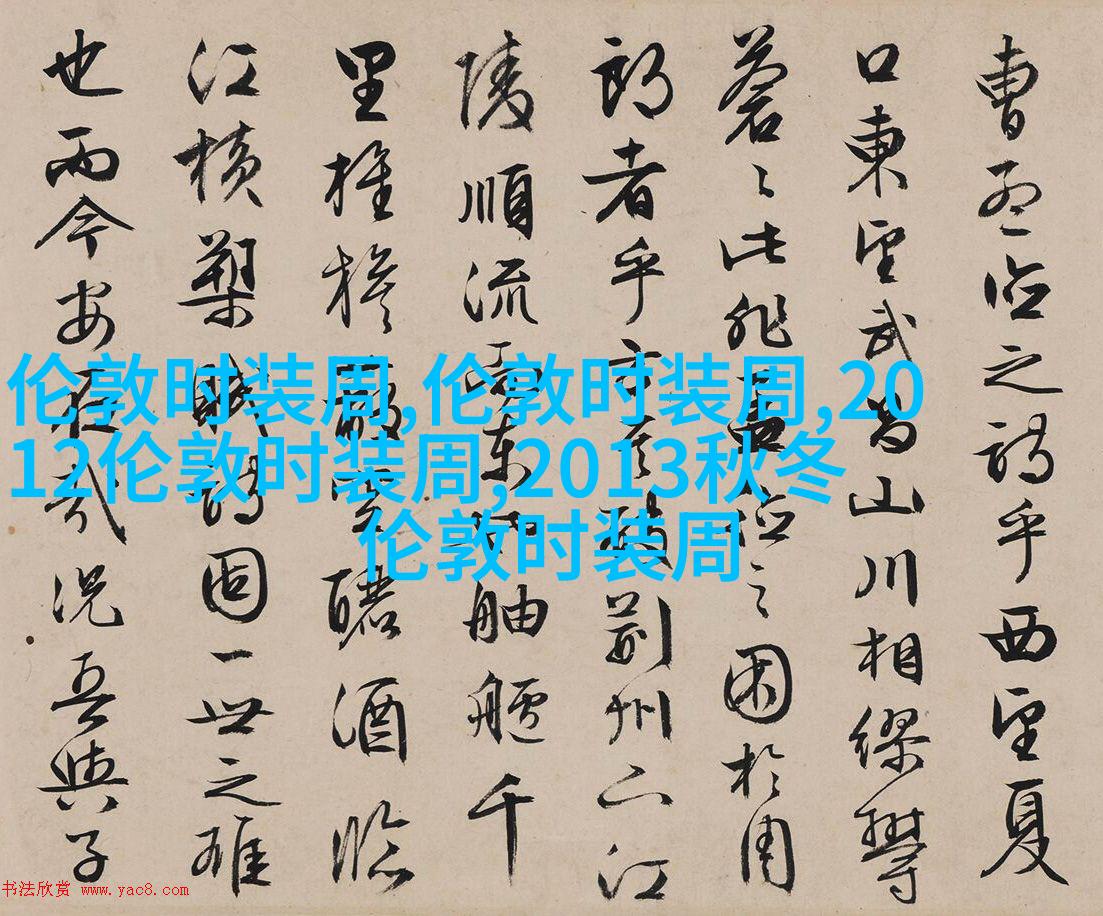 曹孟德之詩乎西望夏
口東望武昌山川相繆鬱
蒼〻此非孟德之困於周
郎者乎方其破荊州下江
陵順流而東也舳艫千
里旌旗蔽空釃酒臨
江橫槊賦詩固一世之雄
也而今安在哉況吾與子
伦敦时装周,伦敦时装周,20
12伦敦时装周,2013秋冬
伦敦时装周
书法欣赏 www.yac8.com